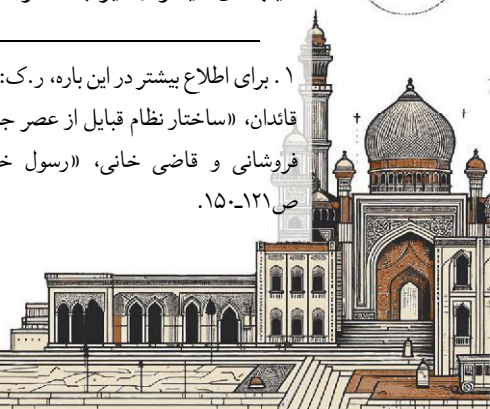 ۱. برای اطلاع بیشتر در این باره، ر.ک:
قائدان، «ساختار نظام قبایل از عصر
فروشانی و قاضی خانی، «رسول
ص۱۲۱ـ۱۵۰.